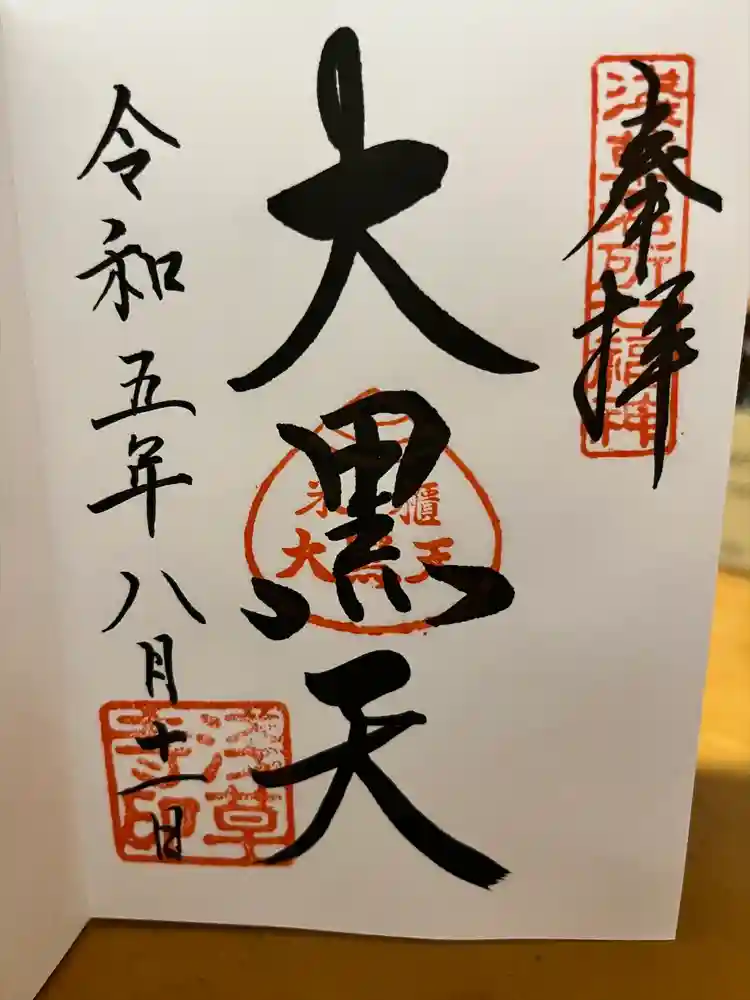 奉拝
浅草名所七福神
大黒天
米櫃
大黒天
令和五年八月十一日
浅草
寺印